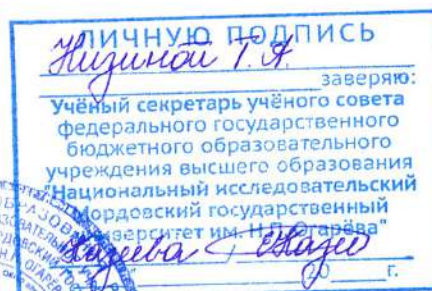 ЛИЧНУЮ ПОДПИСЬ
Низиной Т.А.
заверяю:
Учёный секретарь учёного совета
федерального государственного
бюджетного образовательного
учреждения высшего образования
"Национальный исследовательский
Мордовский государственный
университет им. Н.П. Огарёва"
г.